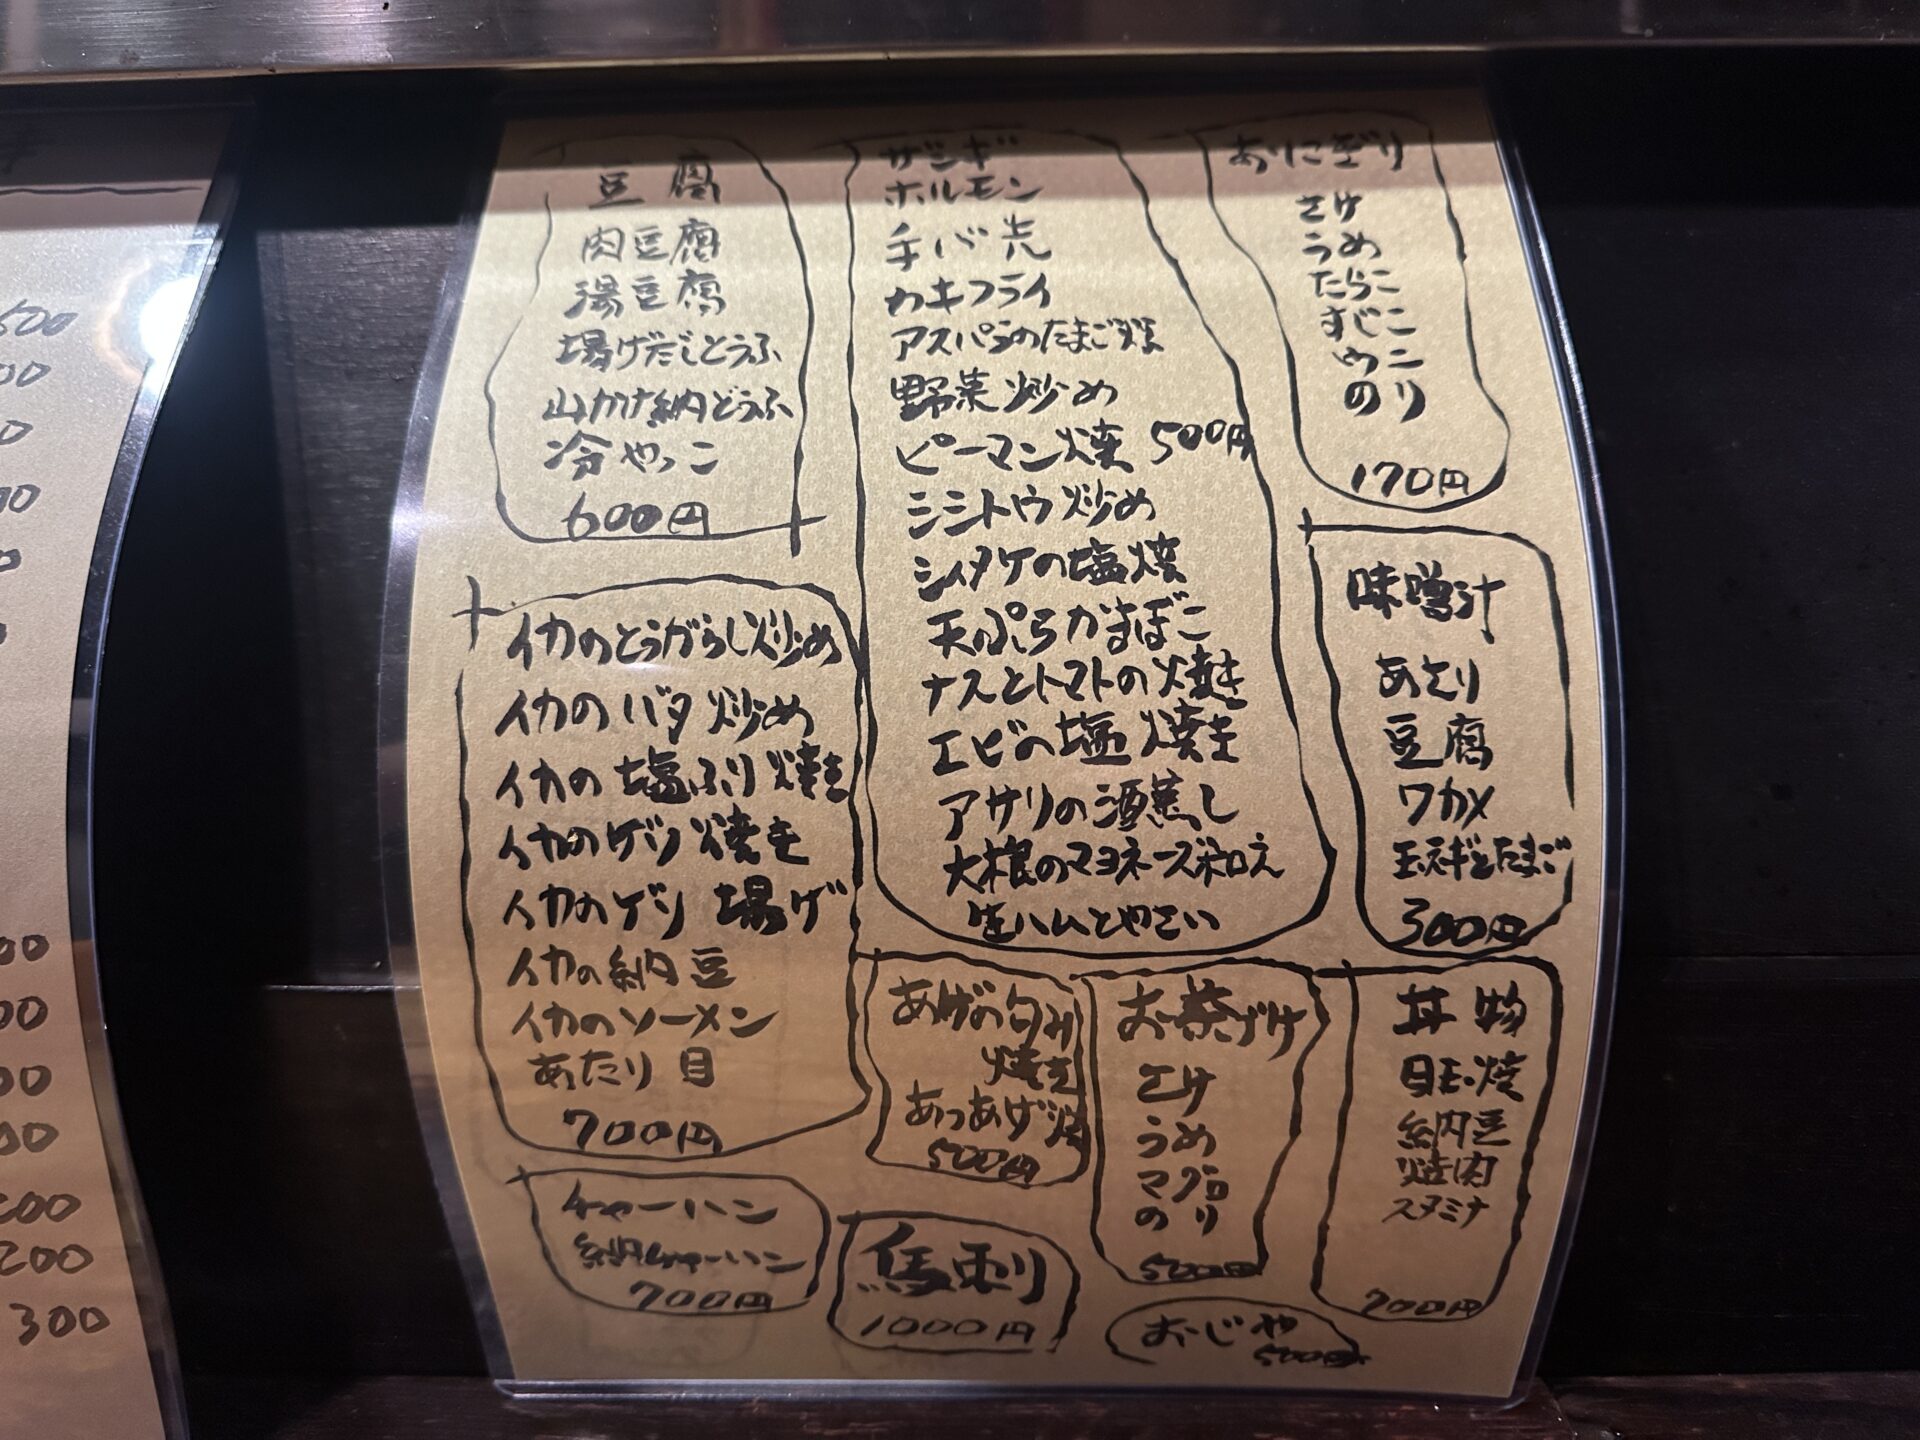 豆腐
肉豆腐
湯豆腐
揚げだしとうふ
山かけ納どうふ
冷やっこ
600円
ザンギ
ホルモン
手バ先
カキフライ
アスパラのたまご焼
野菜炒め
ピーマン焼 500円
シシトウ炒め
シイタケの塩焼
天ぷらかまぼこ
ナスとトマトの焼き
エビの塩焼き
アサリの酒蒸し
大根のマヨネーズ和え
生ハムとやさい
おにぎり
さけ
うめ
たらこ
すじこ
ウニ
のり
170円
イカのとうがらし炒め
イカのバタ炒め
イカの塩ふり焼き
イカのゲソ焼き
イカのゲソ揚げ
イカの納豆
イカのソーメン
あたり目
700円
味噌汁
あさり
豆腐
ワカメ
玉ネギとたまご
300円
あげの包み
焼き
あつあげ焼
500円
お茶づけ
さけ
うめ
マグロ
のり
500円
丼物
目玉焼
納豆
焼肉
スタミナ
700円
チャーハン
納豆チャーハン
700円
馬刺
1000円
おじや
500円
600
300
200
300